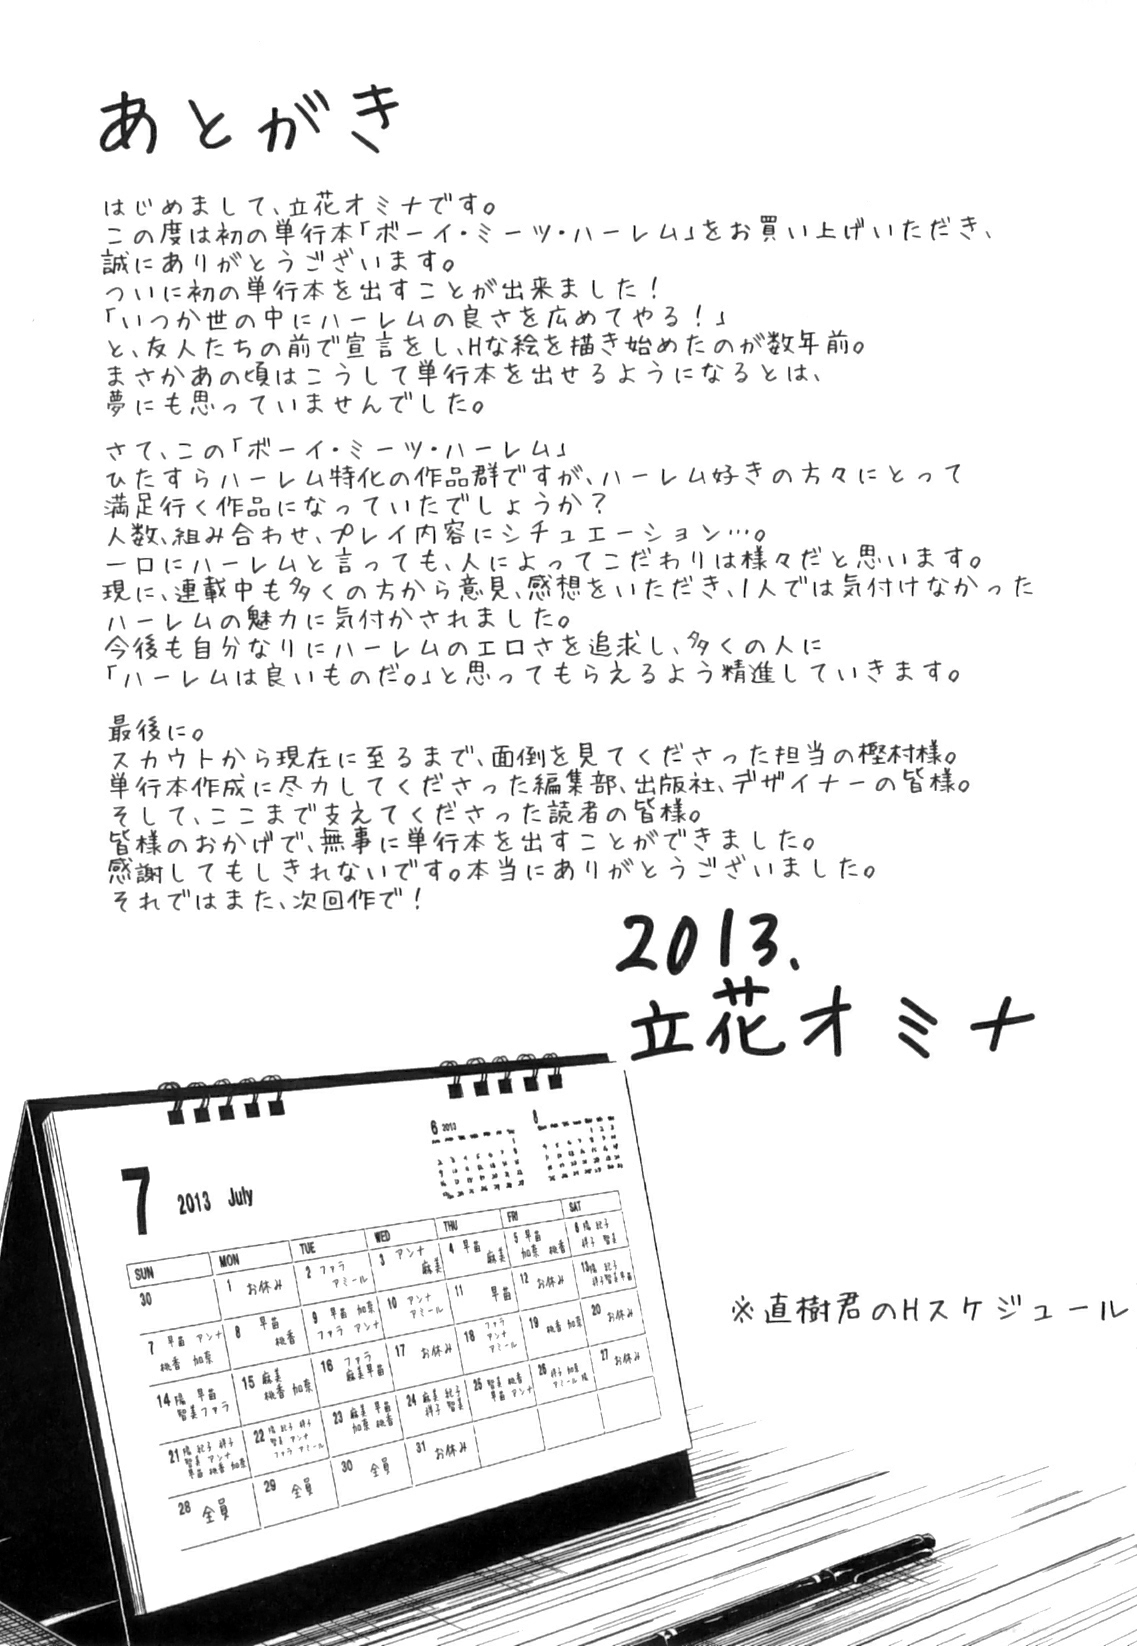 あとがき
はじめまして、立花オミナです。
この度は初の単行本「ボーイ・ミーツ・ハーレム」をお買い上げいただき、
誠にありがとうございます。
ついに初の単行本を出すことが出来ました！
「いつか世の中にハーレムの良さを広めてやる！」
と、友人たちの前で宣言をし、Hな絵を描き始めたのが数年前。
まさかあの頃はこうして単行本を出せるようになるとは、
夢にも思っていませんでした。
さて、この「ボーイ・ミーツ・ハーレム」
ひたすらハーレム特化の作品群ですが、ハーレム好きの方々にとって
満足行く作品になっていたでしょうか？
人数、組み合わせ、プレイ内容にシチュエーション…。
一口にハーレムと言っても、人によってこだわりは様々だと思います。
現に、連載中も多くの方から意見、感想をいただき、1人では気付けなかった
ハーレムの魅力に気付かされました。
今後も自分なりにハーレムのエロさを追求し、多くの人に
「ハーレムは良いものだ。」と思ってもらえるよう精進していきます。
最後に。
スカウトから現在に至るまで、面倒を見てくださった担当の樫村様。
単行本作成に尽力してくださった編集部、出版社、デザイナーの皆様。
そして、ここまで支えてくださった読者の皆様。
皆様のおかげで、無事に単行本を出すことができました。
感謝してもしきれないです。本当にありがとうございました。
それではまた、次回作で！
2013.
立花オミナ
6 2013
8
7 2013 July
SUN MON TUE WED THU FRI SAT
30
1 お休み
2 ファラ
アミール
3 アンナ
麻美
4 早苗
麻美
5 早苗
加奈 桃香
6 陽 妃子
祥子 智美
7 早苗 アンナ
桃香 加奈
8 早苗
桃香
9 早苗 加奈
ファラ アンナ
10 アンナ
アミール
11 早苗
12 お休み
13 陽 妃子
祥子 智美 早苗
14 陽 早苗
智美 ファラ
15 麻美
桃香 加奈
16 ファラ
麻美 早苗
17 お休み
18 ファラ
アンナ
アミール
19 桃香 加奈
20 お休み
21 陽 妃子 祥子
智美 アンナ
早苗 桃香 加奈
22 陽 妃子 祥子
智美 アンナ
ファラ アミール
23 麻美 早苗
加奈 桃香
24 麻美 妃子
祥子 智美
25 智美 桃香
早苗 アンナ
26 祥子 加奈
アミール 陽
27 お休み
28 全員
29 全員
30 全員
31 お休み
※直樹君のHスケジュール